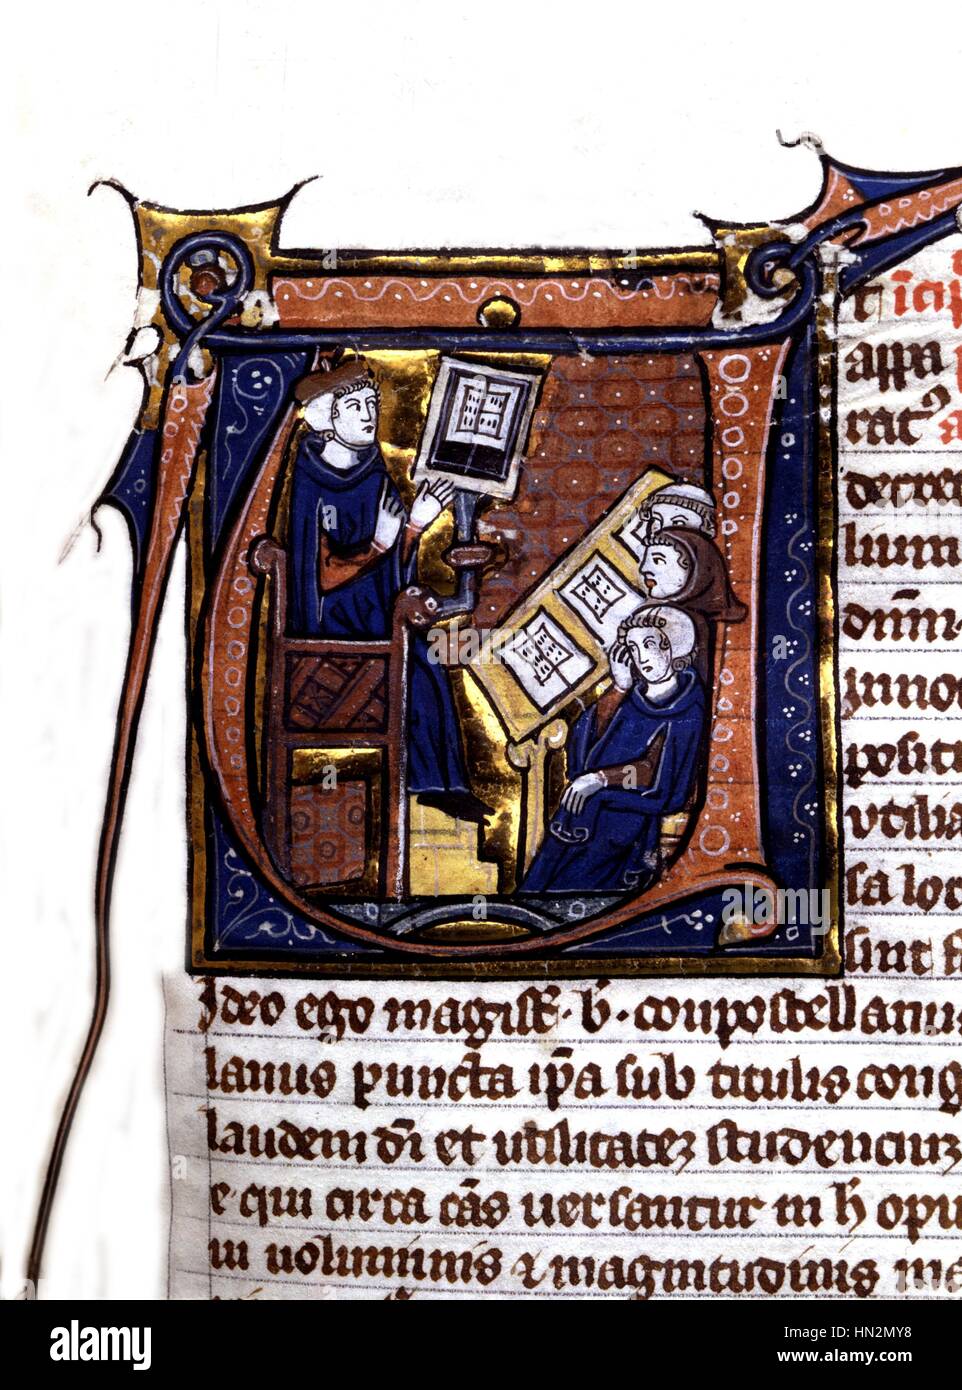 t incip
appa
rat9 a
decre
lium
dñni.
inno
positi
utilia
sa lo
sint
Ideo ego magist̄. b̄. conpostellanus
lanus puncta ip̄a sub titulis cong
laudem dī et utilitatez studenciuz
e qui circa cās versantur in h̄ opu
iu uoluminis & magnitudinis ma
alamy stock photo
HN2MY8
www.alamy.com